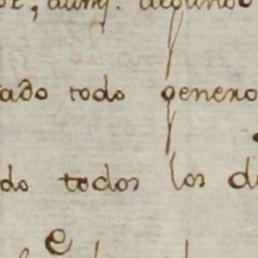 aunq. algunos
ado todo genero
do todos los d
e